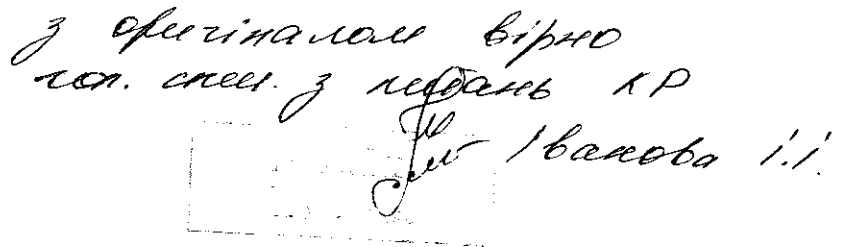 з оригіналом вірно
гол. спец. з питань КР
Іванова І.І.